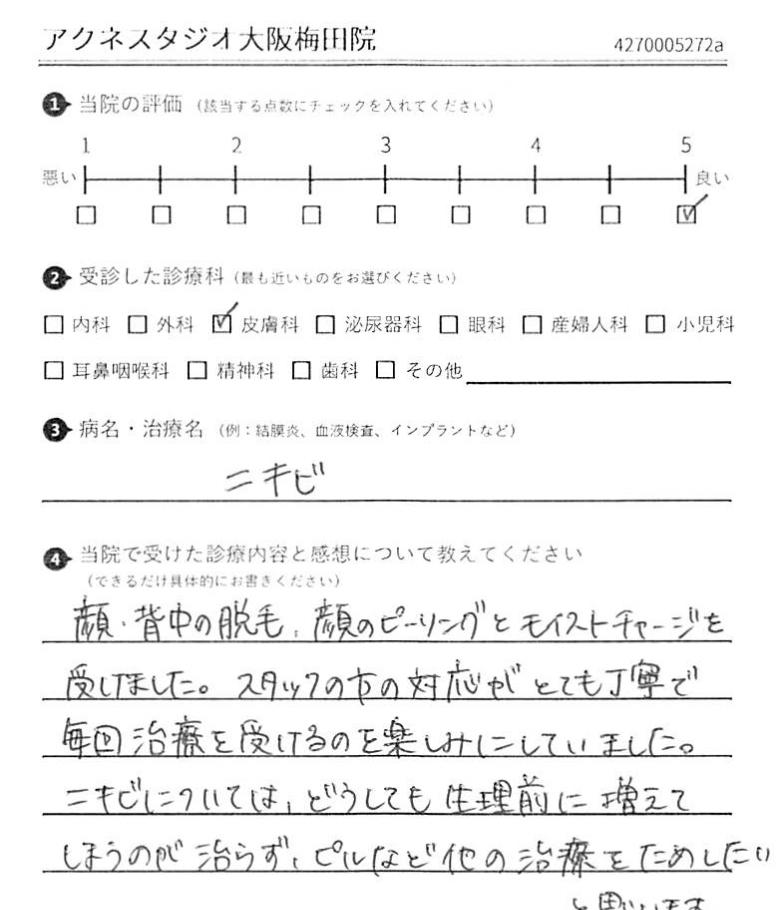 アクネスタジオ大阪梅田院 4270005272a
1 当院の評価 (該当する点数にチェックを入れてください)
1 2 3 4 5
悪い 良い
2 受診した診療科 (最も近いものをお選びください)
内科 外科 皮膚科 泌尿器科 眼科 産婦人科 小児科
耳鼻咽喉科 精神科 歯科 その他
3 病名・治療名 (例:結膜炎、血液検査、インプラントなど)
ニキビ
4 当院で受けた診療内容と感想について教えてください
(できるだけ具体的にお書きください)
顔・背中の脱毛、顔のピーリングとモイストチャージを
受けました。スタッフの方の対応がとても丁寧で
毎回治療を受けるのを楽しみにしていました。
ニキビについては、どうしても生理前に増えて
しまうのが治らず、ピルなど他の治療をためしたい
と思います